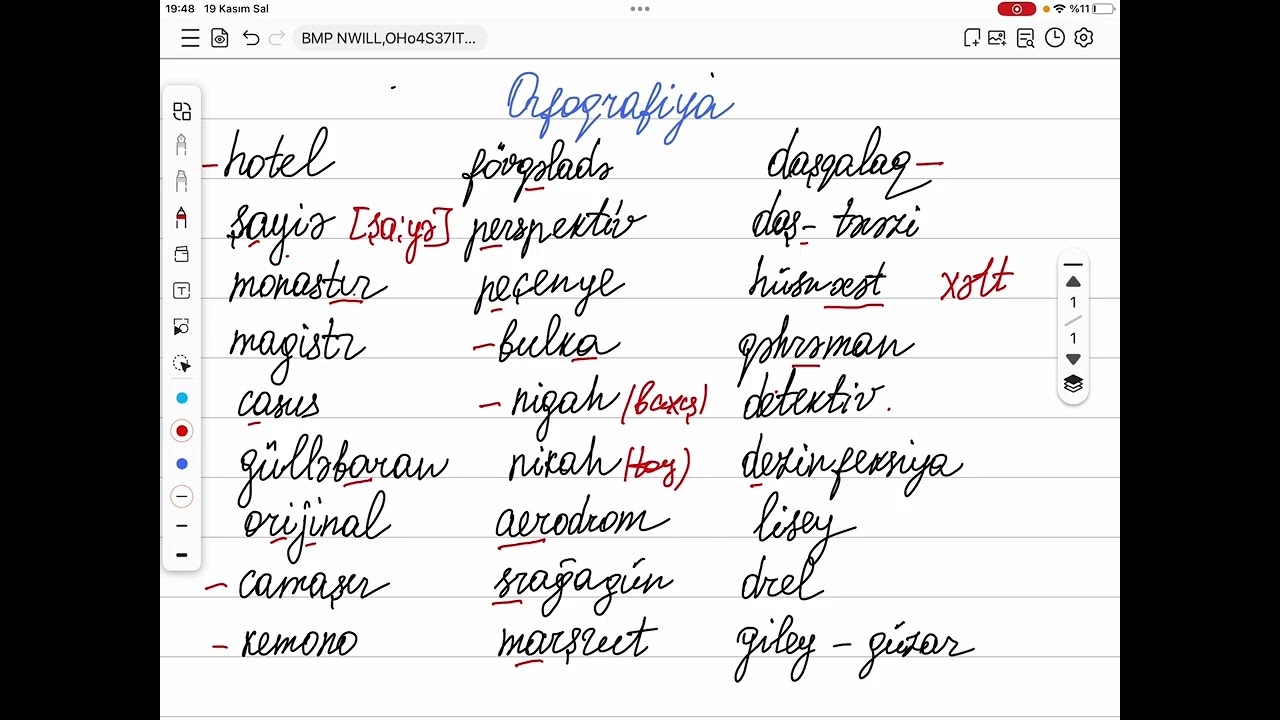 19:48 19 Kasım Sal %11
BMP NWILL,OHo4S37IT...
Orfoqrafiya
hotel fövqəladə daşqalaq
şayiə [şa:yə] perspektiv daş-tərəzi
monastır peçenye hüsnxət xətt
magistr bulka qəhrəman
casus nigah (baxış) detektiv.
gülləbaran nikah (toy) dezinfeksiya
orijinal aerodrom lisey
camaşır srağagün drel
kemono marşrut giley-güzar
1
1